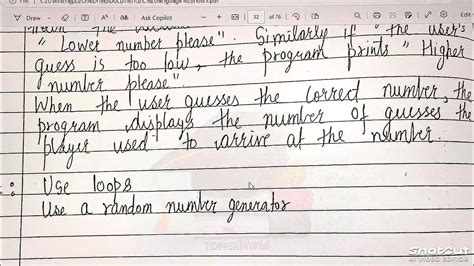 Draw
Ask Copilot
32
of 76
"Lower number please". Similarly if the user's
guess is too low, the program prints "Higher
number please".
When the user guesses the correct number, the
program displays the number of guesses the
player used to arrive at the number.
Use loops
Use a random number generator
TOPPERWorld
ShotCut
AI VIDEO EDITOR